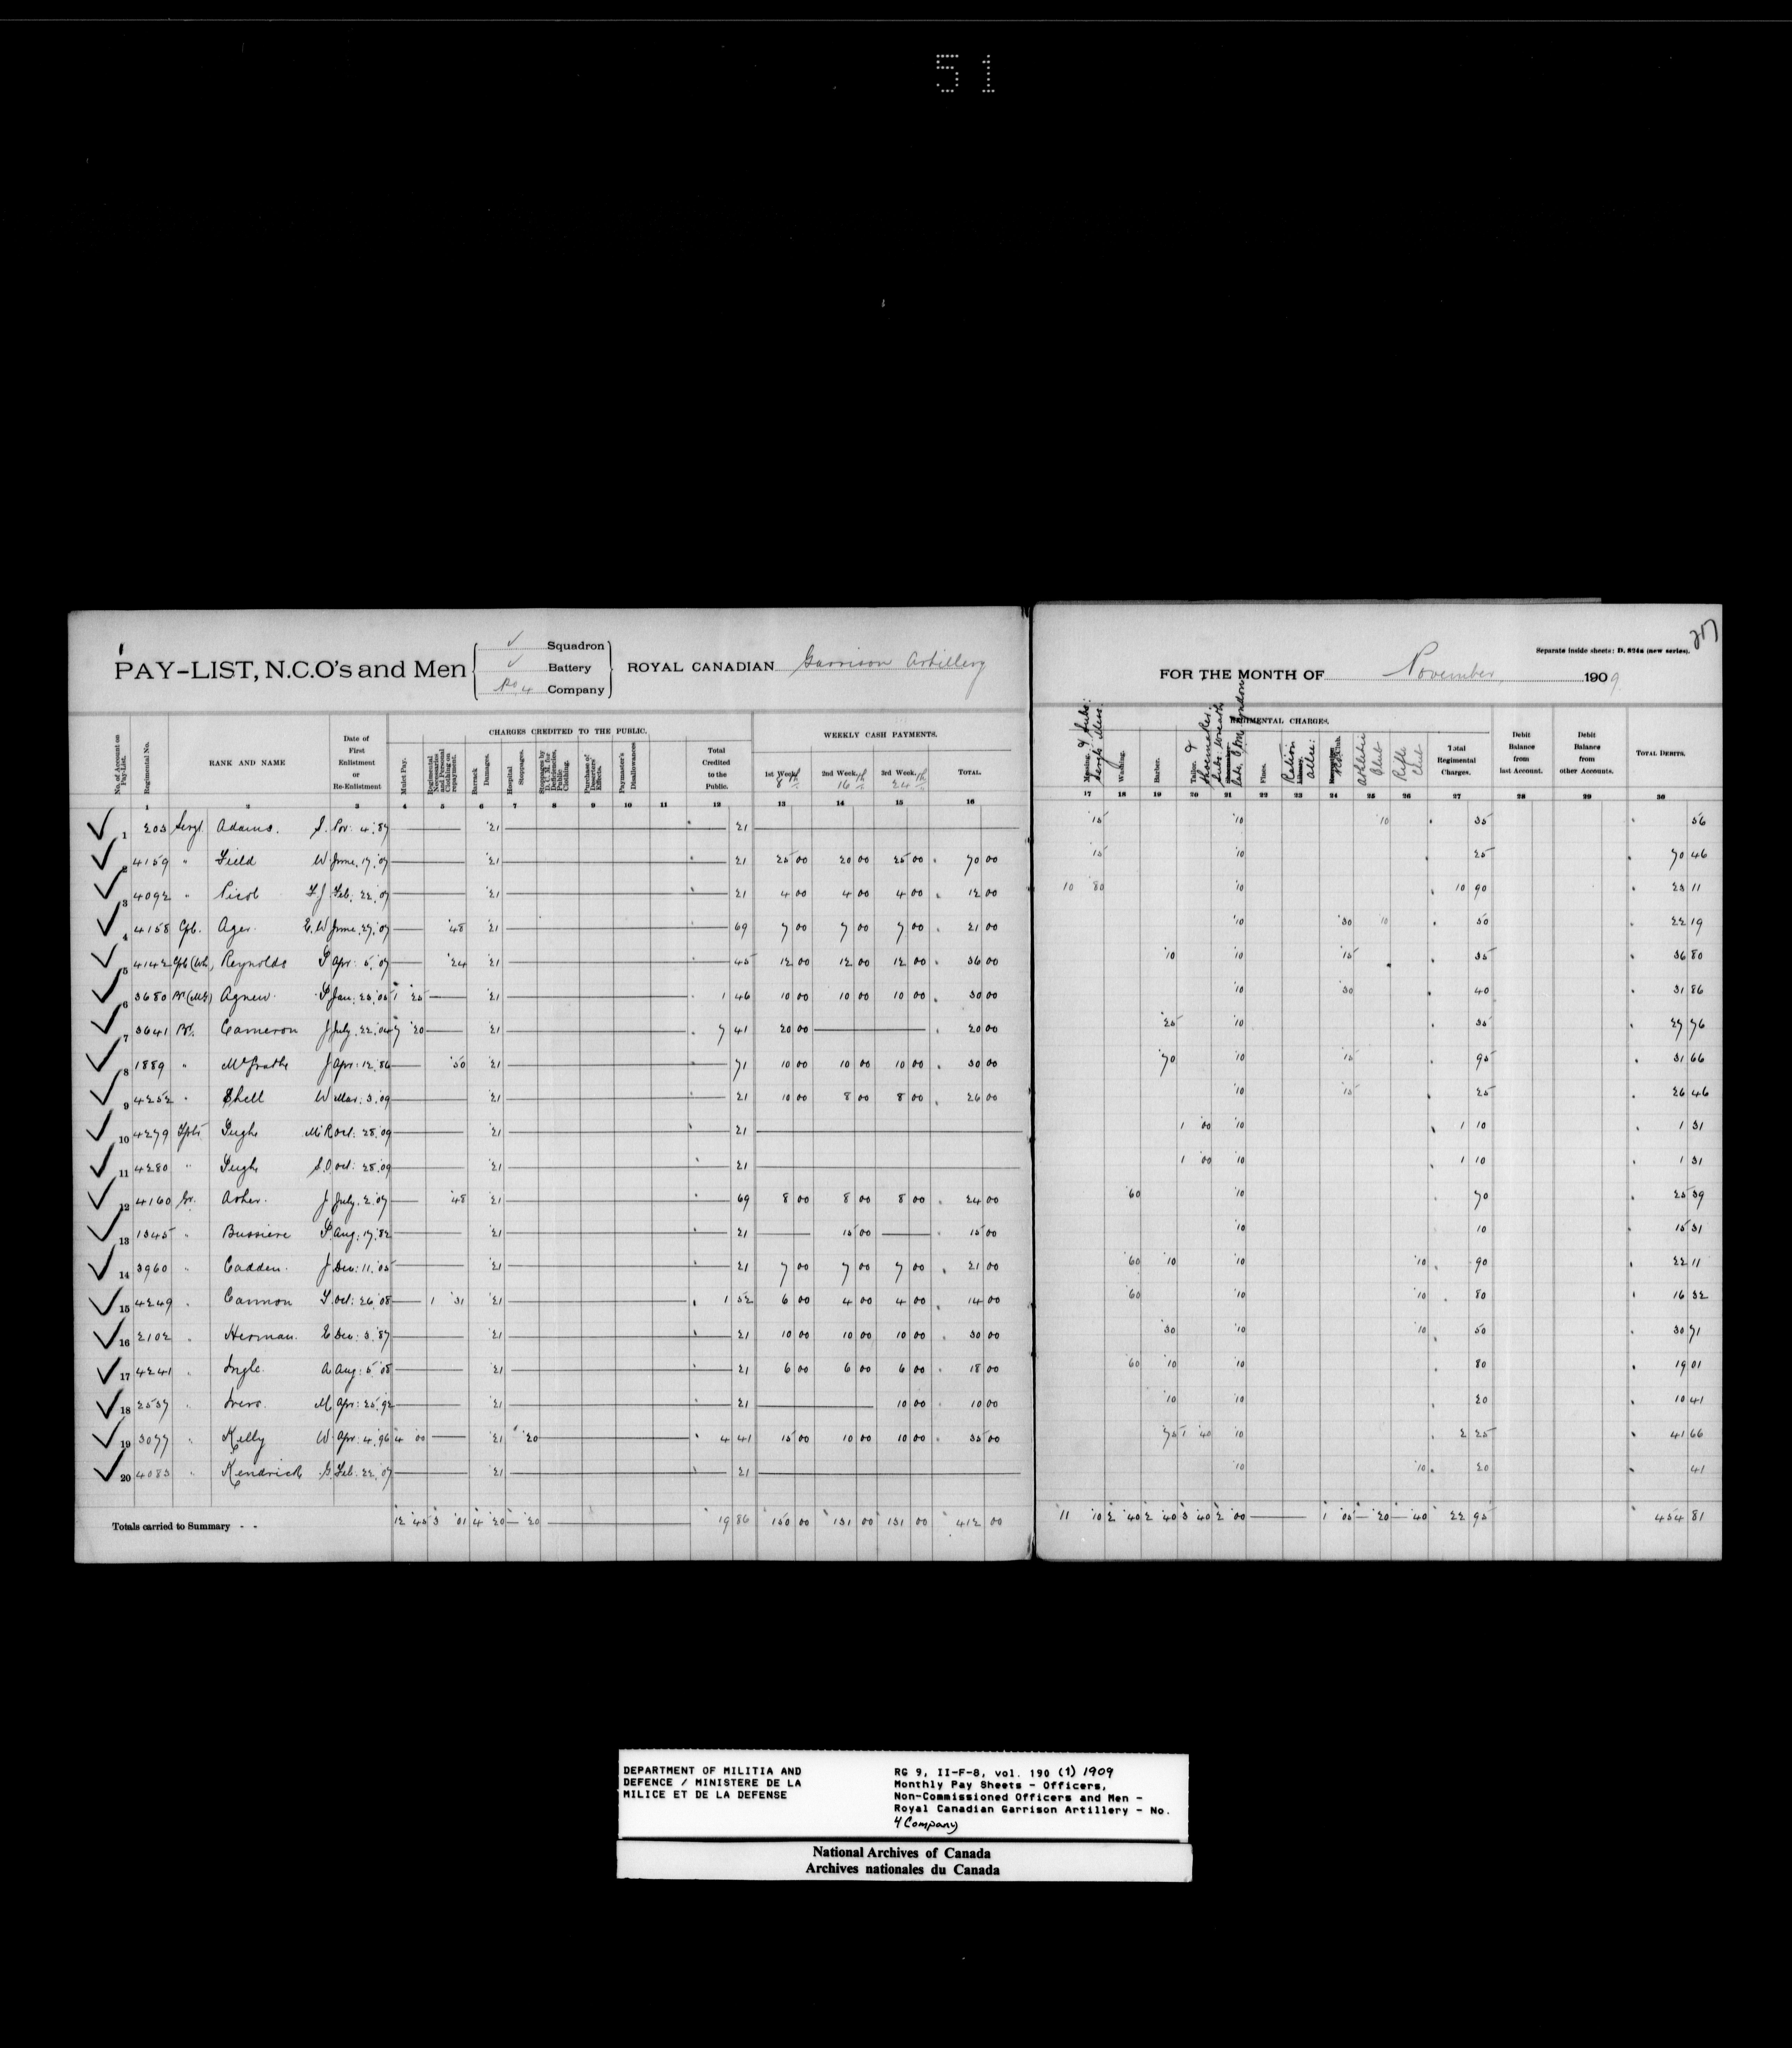 51
217
PAY-LIST, N.C.O's and Men
Squadron
Battery
No 4 Company
ROYAL CANADIAN Garrison Artillery
FOR THE MONTH OF November, 1909
Separate inside sheets: D. 824a (new series).
No. of Account on Pay-List.
Regimental No.
RANK AND NAME
Date of First Enlistment or Re-Enlistment
CHARGES CREDITED TO THE PUBLIC.
Mulct Pay.
Regimental Necessaries and Personal Clothing on repayment.
Barrack Damages.
Hospital Stoppages.
Stoppages by D. of M. for Deficiencies, Public Clothing.
Purchase of Deserters' Effects.
Paymaster's Disallowances
Total Credited to the Public.
WEEKLY CASH PAYMENTS.
1st Week 8th
2nd Week 16th
3rd Week 24th
TOTAL.
REGIMENTAL CHARGES.
Messing. & Subs: Sergts Mess.
Washing.
Barber.
Tailor. & Shoemaker.
Fines.
Ration Allce:
Athletic Club
Rifle Club
Total Regimental Charges.
Debit Balance from last Account.
Debit Balance from other Accounts.
TOTAL DEBITS.
1 2 3 4 5 6 7 8 9 10 11 12 13 14 15 16 17 18 19 20 21 22 23 24 25 26 27 28 29 30
1 203 Sergt. Adams. S. Nov: 4, 87 21 21 15 10 10 35 56
2 4159 " Field W June, 17, 07 21 21 25 00 20 00 25 00 70 00 15 10 25 70 46
3 4092 " Nicol F.J. Feb: 22, 07 21 21 4 00 4 00 4 00 12 00 10 80 10 10 90 23 11
4 4158 Cpl. Ager. E.W June, 27, 07 48 21 69 7 00 7 00 7 00 21 00 10 30 10 50 22 19
5 4142 Reynolds P Apr: 5, 07 24 21 45 12 00 12 00 12 00 36 00 10 10 15 35 36 80
6 3680 Agnew. P Jan: 25, 05 1 25 21 1 46 10 00 10 00 10 00 30 00 10 30 40 31 86
7 3641 Br. Cameron J July, 22, 04 7 20 21 7 41 20 00 20 00 25 10 35 27 76
8 1889 " McGrathe J Apr: 12, 86 50 21 71 10 00 10 00 10 00 30 00 70 10 15 95 31 66
9 4252 " Shell W Mar: 3, 09 21 21 10 00 8 00 8 00 26 00 10 15 25 26 46
10 4279 Pugh M.R Oct: 28, 09 21 21 1 00 10 1 10 1 31
11 4280 " Pugh S.O Oct: 28, 09 21 21 1 00 10 1 10 1 31
12 4160 Gr. Asher. J July, 2, 07 48 21 69 8 00 8 00 8 00 24 00 60 10 70 25 39
13 1345 " Bussiere P Aug: 17, 82 21 21 15 00 15 00 10 10 15 31
14 3960 " Cadden. J Dec: 11, 05 21 21 7 00 7 00 7 00 21 00 60 10 10 10 90 22 11
15 4249 " Cannon T. Oct: 26, 08 1 31 21 1 52 6 00 4 00 4 00 14 00 60 10 10 80 16 32
16 2102 " Herman. E Dec: 3, 87 21 21 10 00 10 00 10 00 30 00 30 10 10 50 30 71
17 4241 " Ingle. A Aug: 5, 08 21 21 6 00 6 00 6 00 18 00 60 10 10 80 19 01
18 2537 " Ivers. M Apr: 25, 92 21 21 10 00 10 00 10 10 20 10 41
19 3077 " Kelly W Apr: 4, 96 4 00 21 20 4 41 15 00 10 00 10 00 35 00 75 1 40 10 2 25 41 66
20 4083 " Kendrick G. Feb: 22, 07 21 21 10 10 20 41
Totals carried to Summary - - 12 45 3 01 4 20 20 19 86 150 00 131 00 131 00 412 00 11 10 2 40 2 40 3 40 2 00 1 05 20 40 22 95 454 81
DEPARTMENT OF MILITIA AND
DEFENCE / MINISTERE DE LA
MILICE ET DE LA DEFENSE
RG 9, II-F-8, vol. 190 (1) 1909
Monthly Pay Sheets - Officers,
Non-Commissioned Officers and Men -
Royal Canadian Garrison Artillery - No.
4 Company
National Archives of Canada
Archives nationales du Canada